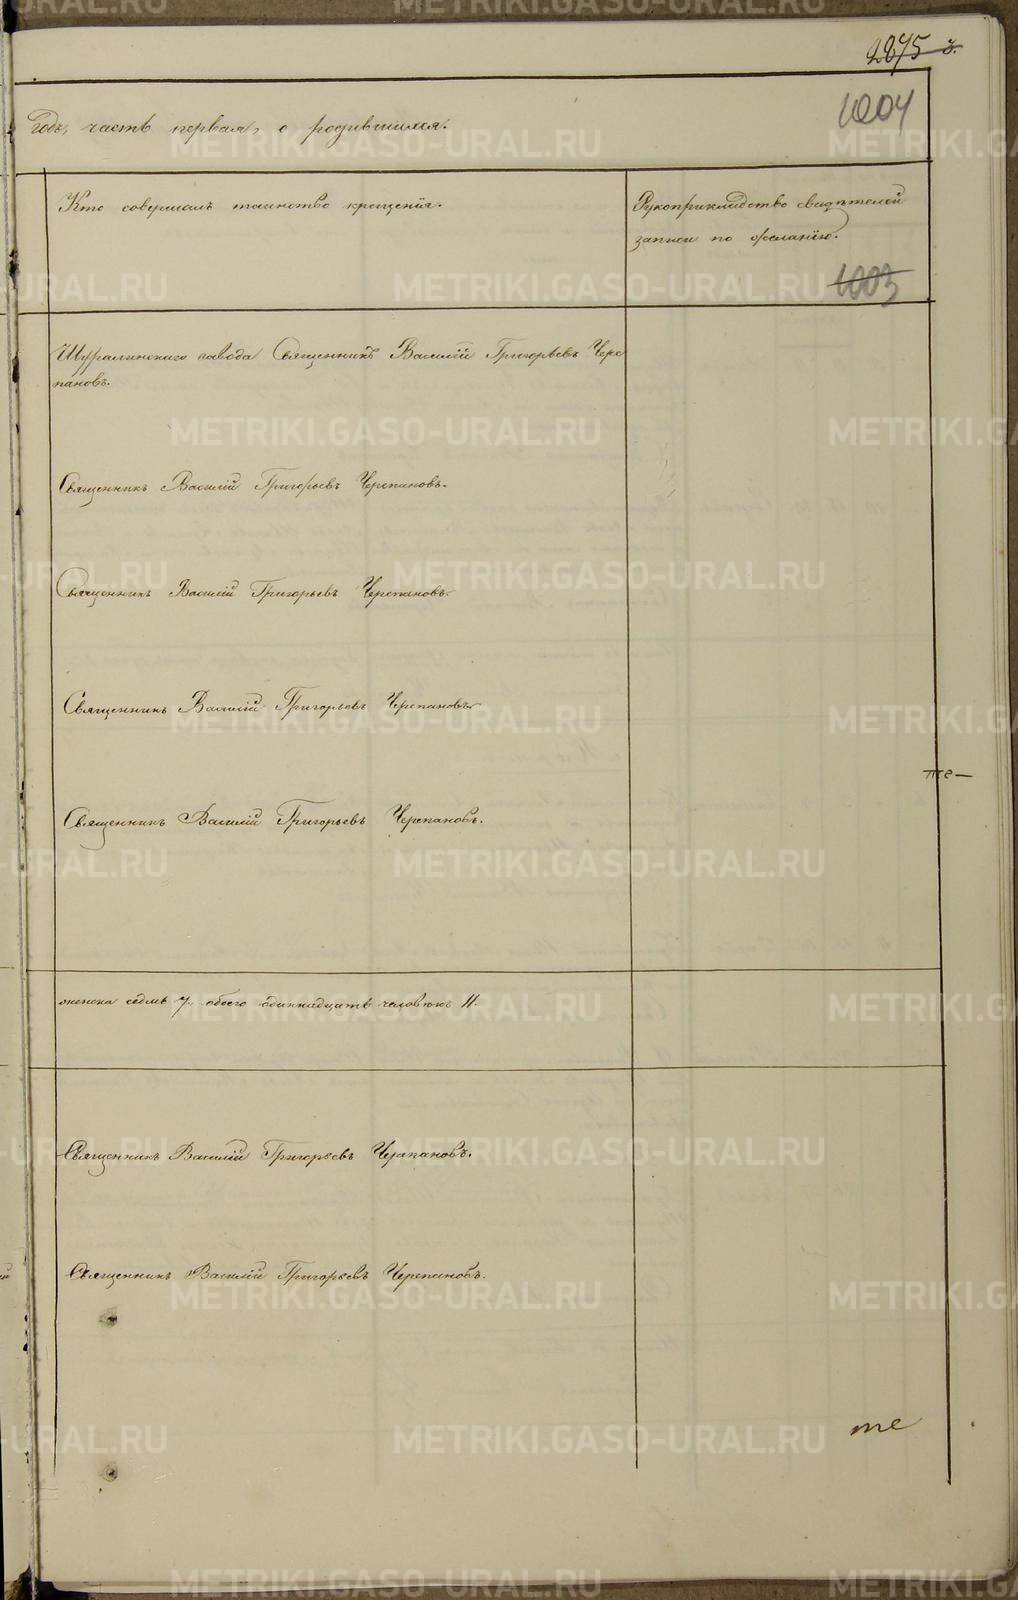 2875
1004
Годъ, часть первая, о родившихся.
Кто совершалъ таинство крещенія.
Рукоприкладство свидѣтелей
записи по желанію.
1003
Шуралинскаго завода Священникъ Василій Григорьевъ Чере
пановъ.
Священникъ Василій Григорьевъ Черепановъ.
Священникъ Василій Григорьевъ Черепановъ.
Священникъ Василій Григорьевъ Черепановъ.
те—
Священникъ Василій Григорьевъ Черепановъ.
женска седмь 7, обоего одиннадцать человѣкъ 11.
Священникъ Василій Григорьевъ Черепановъ.
Священникъ Василій Григорьевъ Черепановъ.
те
METRIKI.GASO-URAL.RU